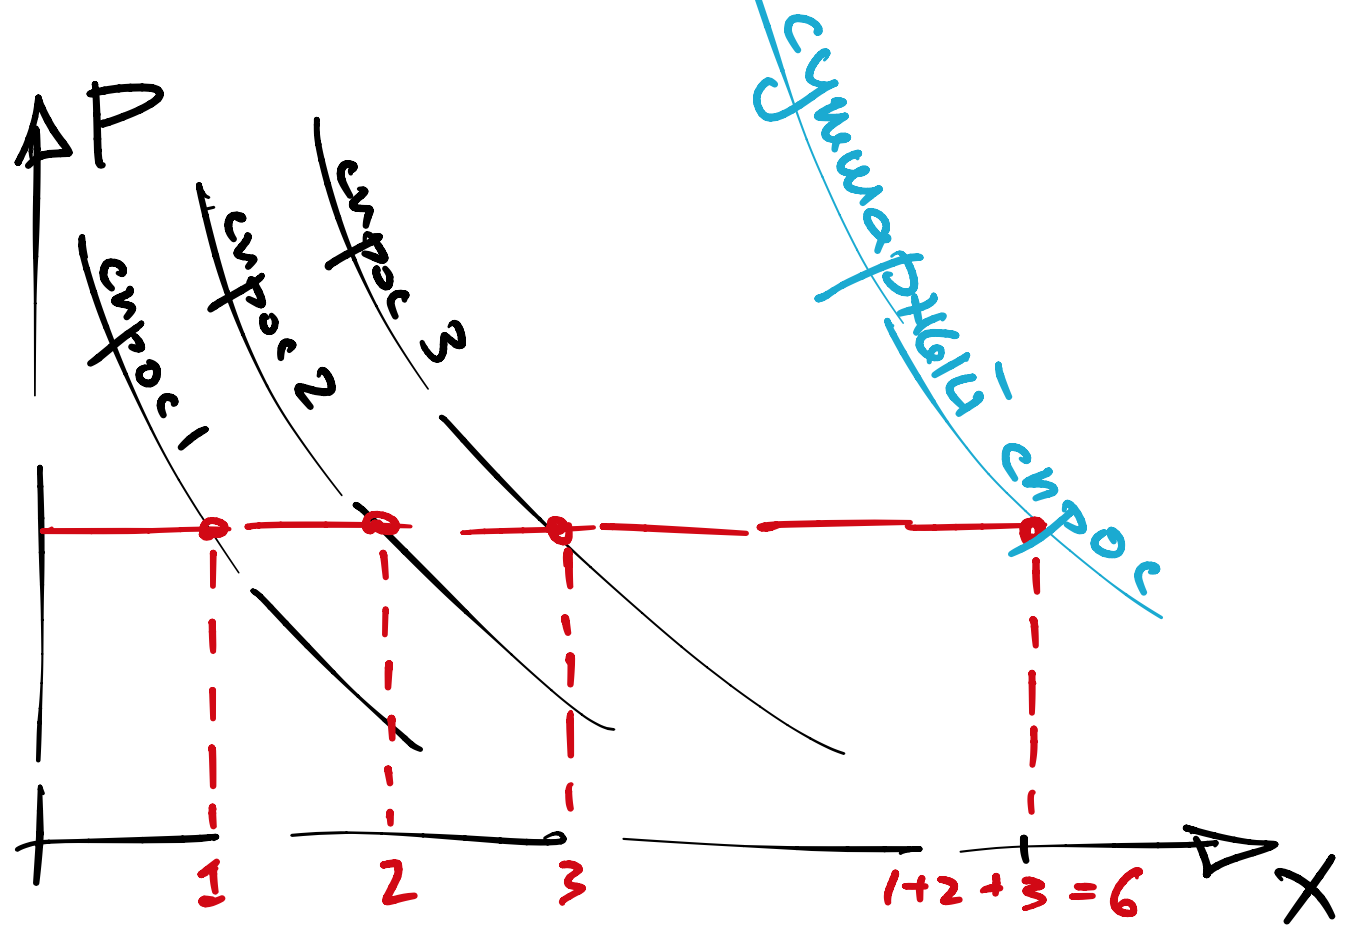 P
спрос 1
спрос 2
спрос 3
суммарный спрос
1
2
3
1+2+3=6
X